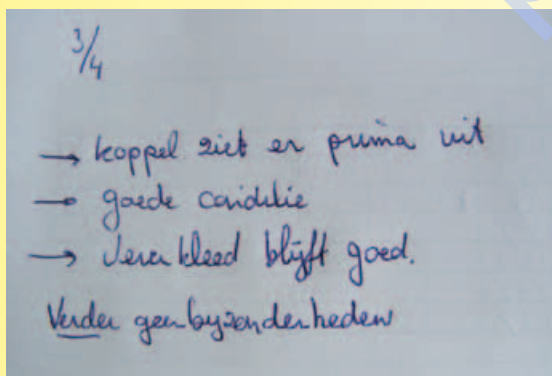 3/4
→ koppel ziet er prima uit
→ goede conditie
→ Verenkleed blijft goed.
Verder geen byzonderheden